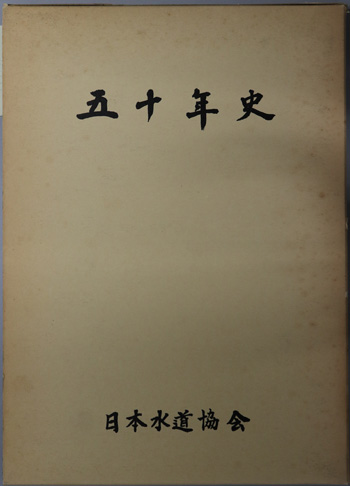 五十年史
日本水道協会